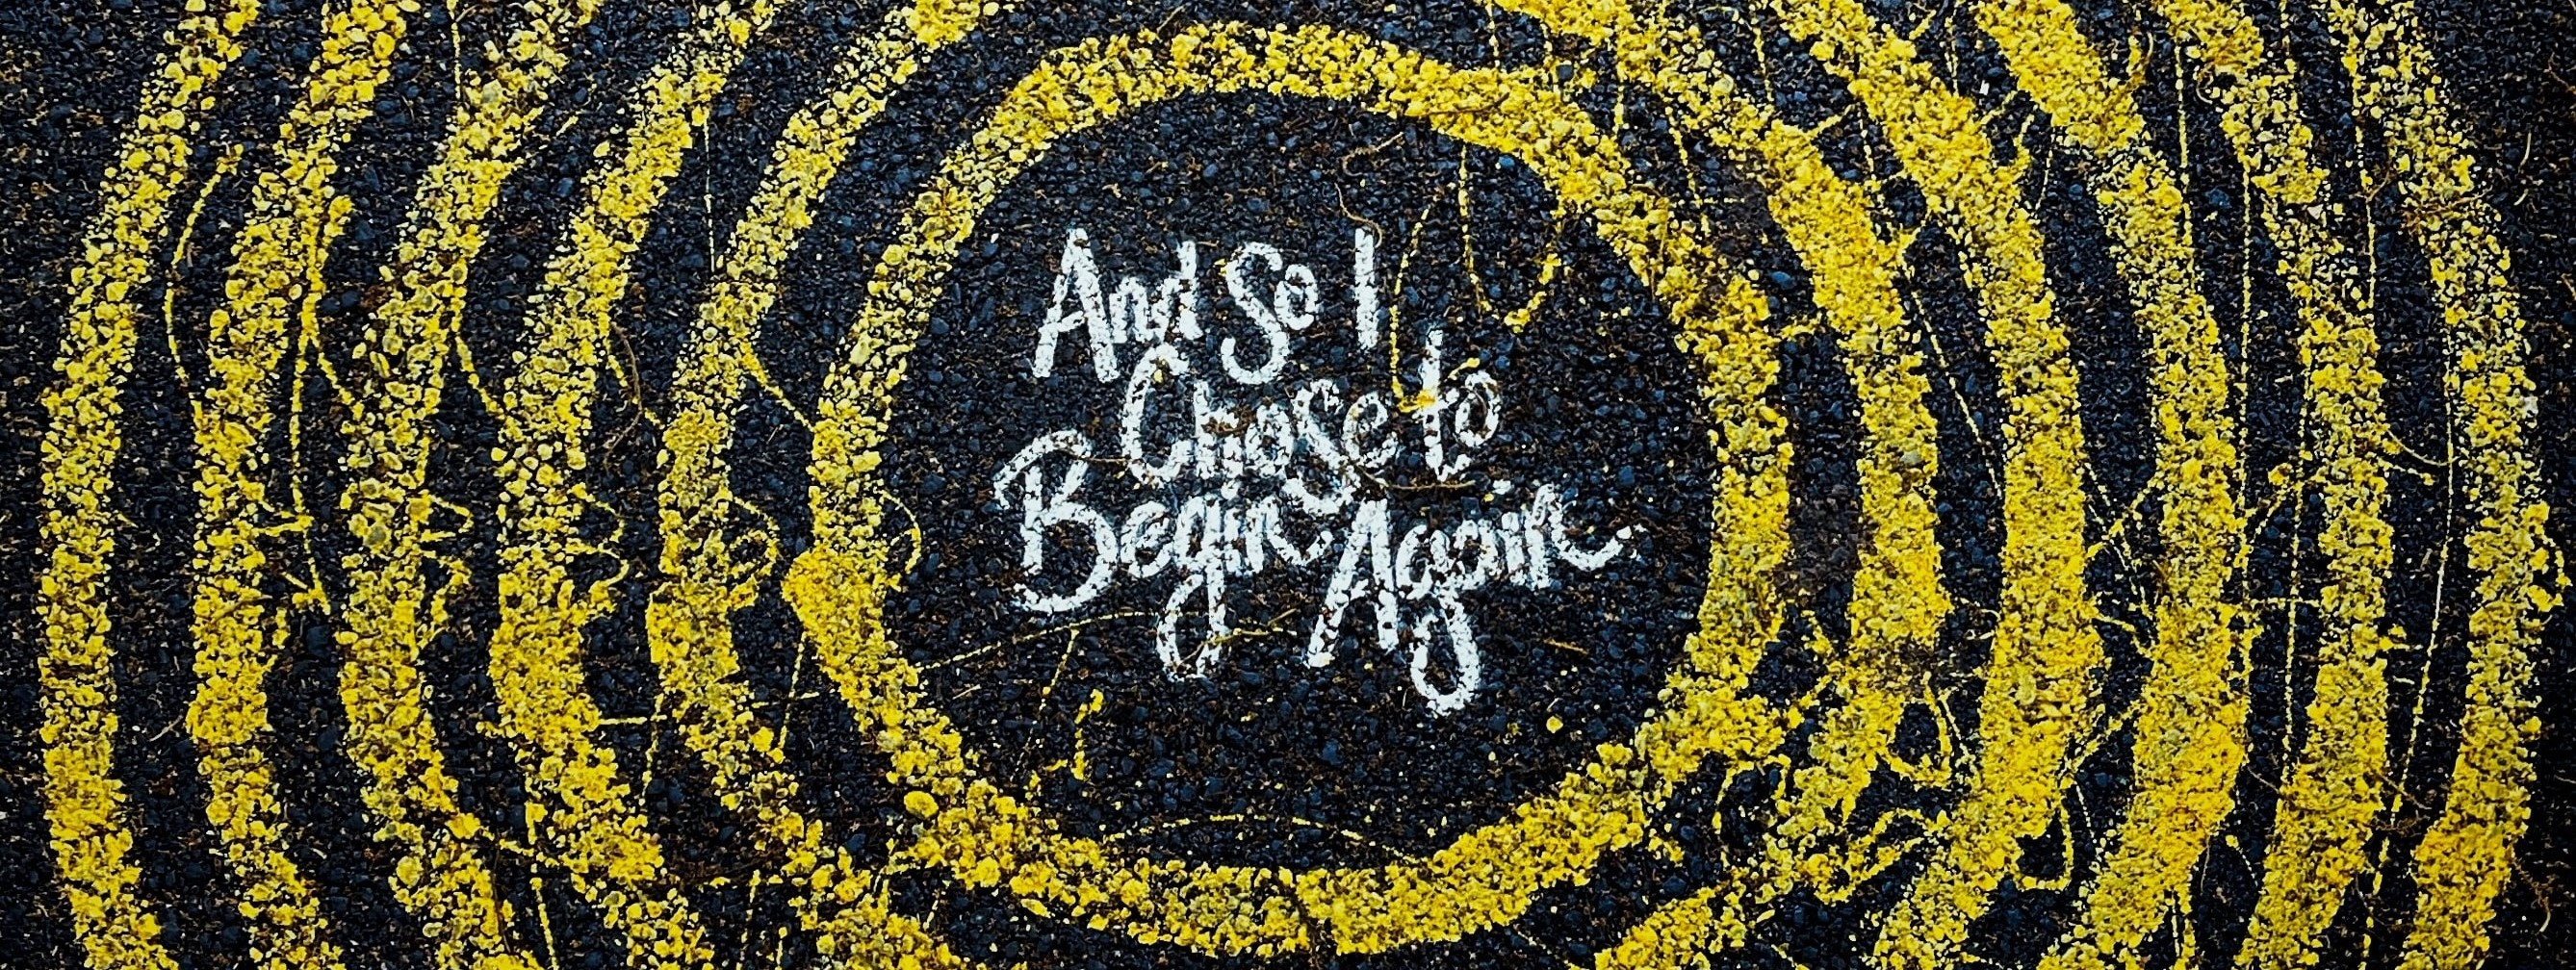 And So I
Chose to
Begin Again